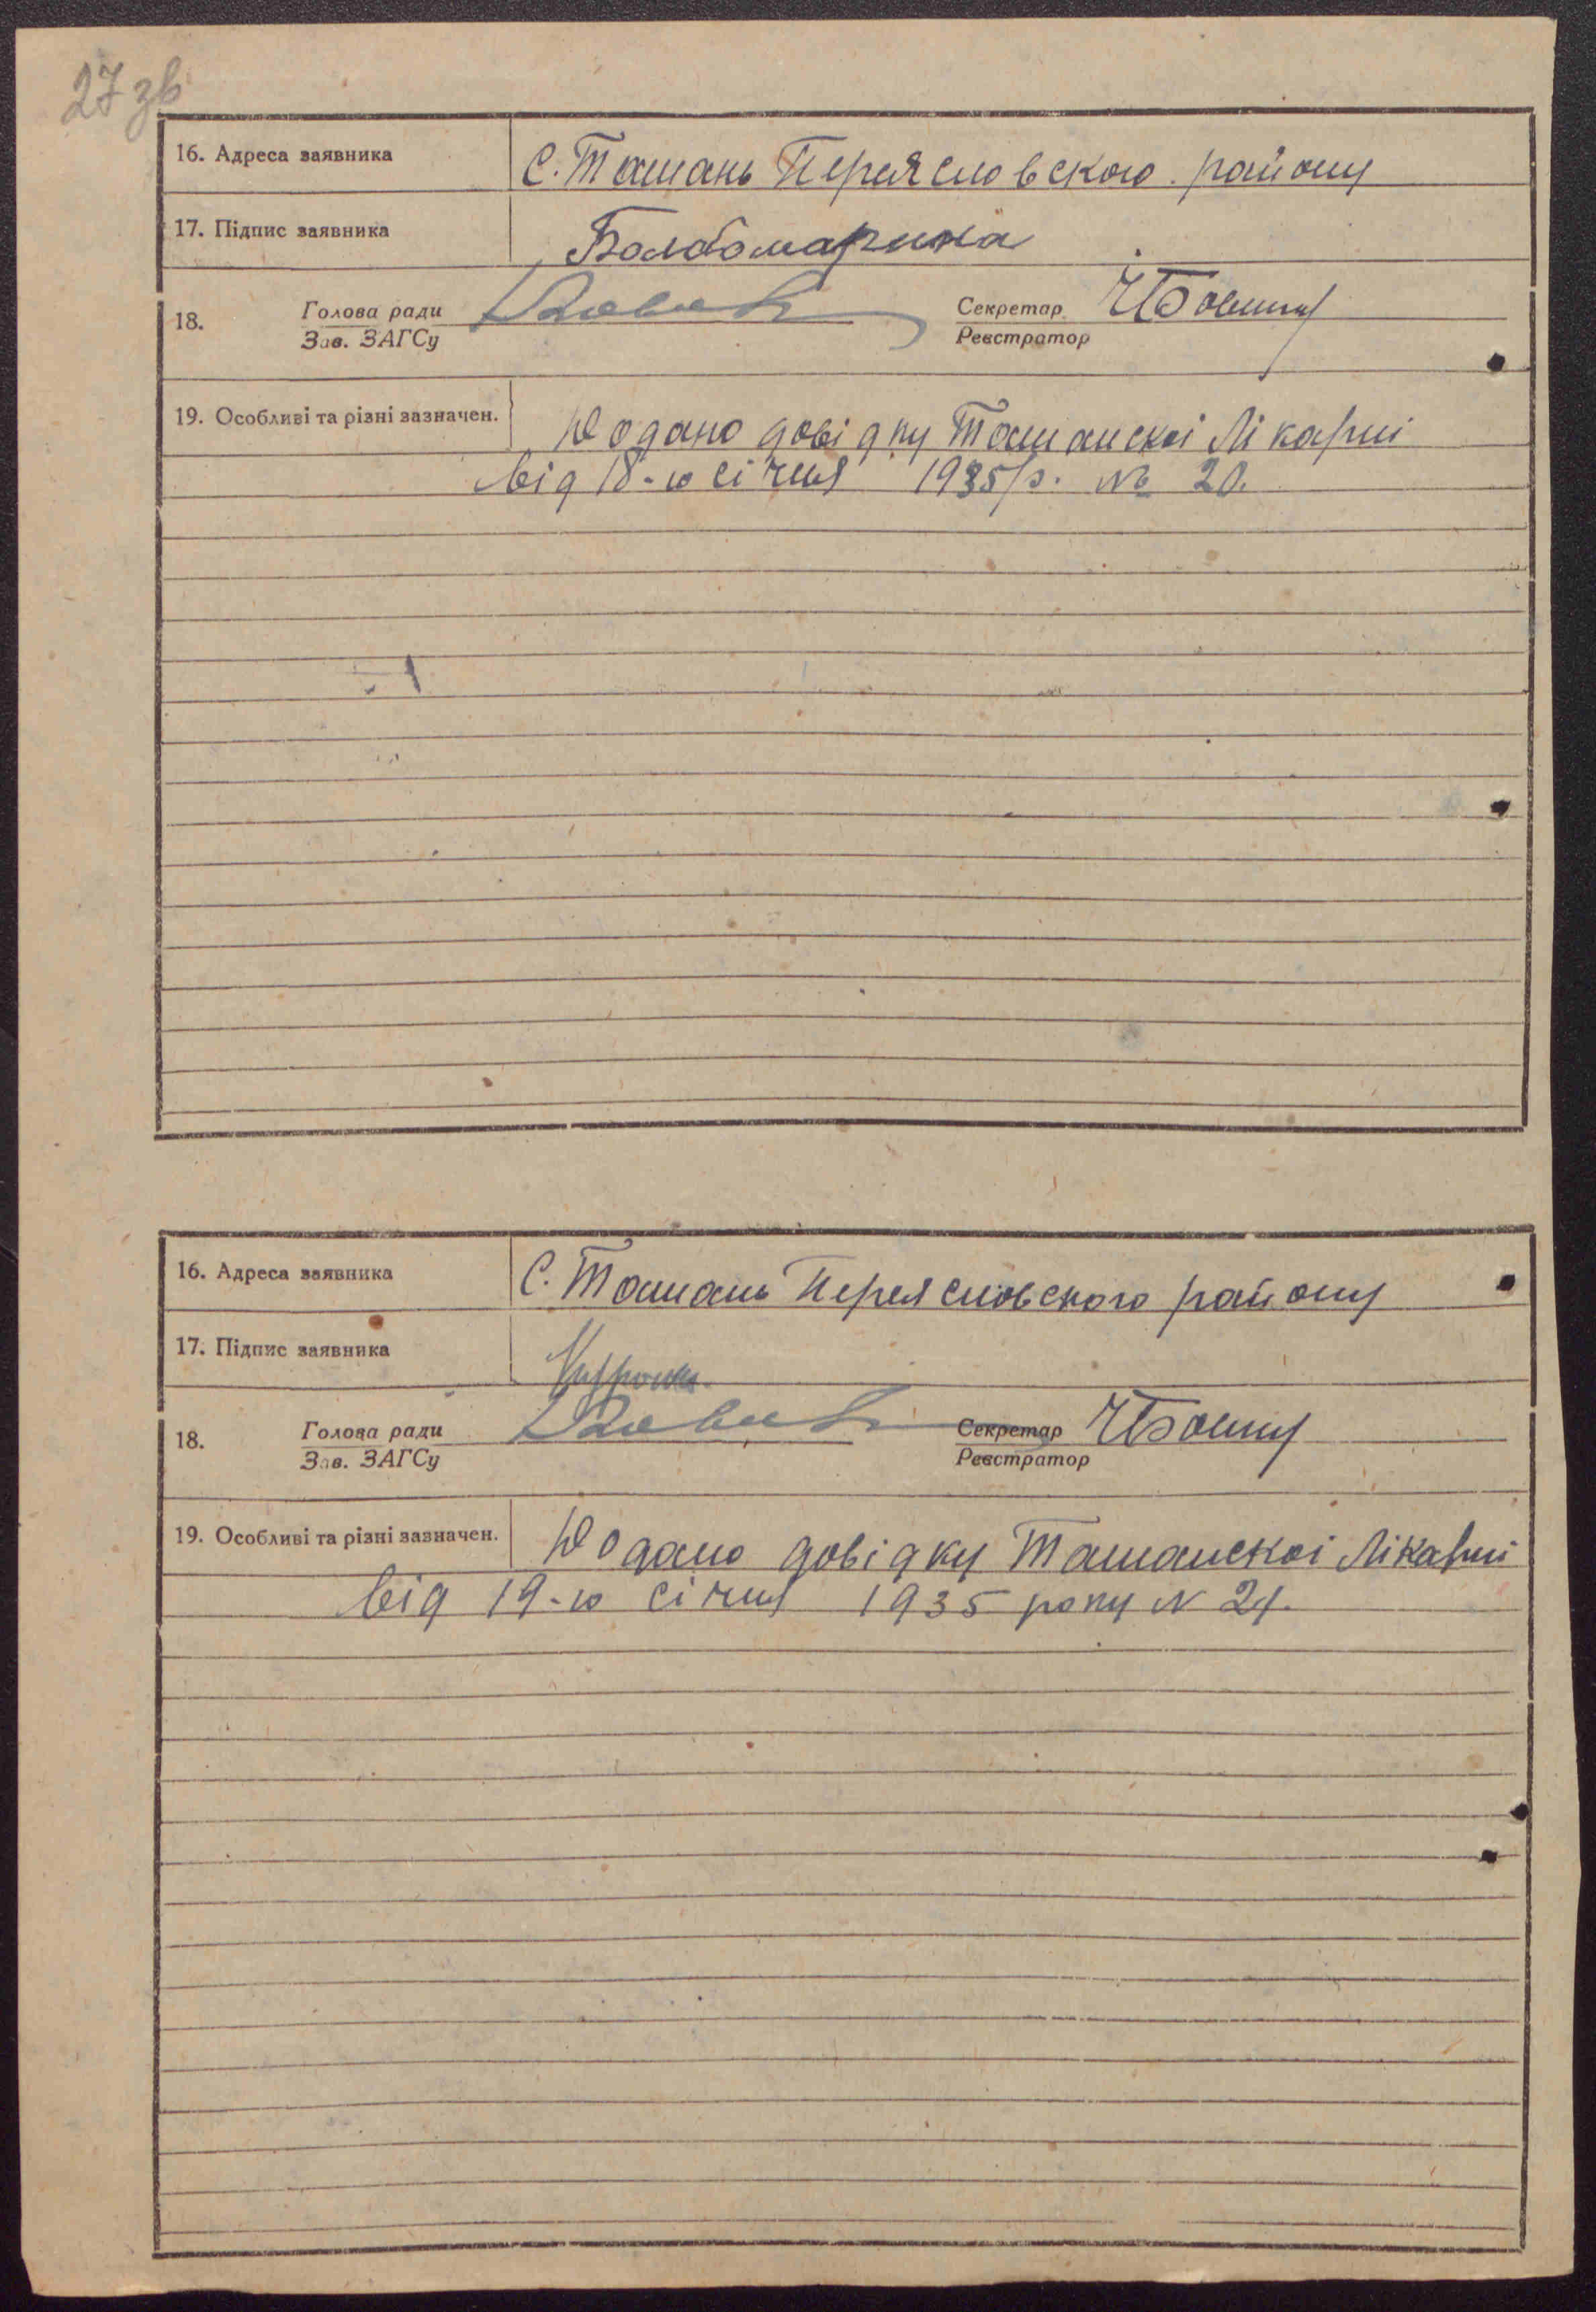 27 зв
16. Адреса заявника С. Ташань Переясловского району
17. Підпис заявника
18. Голова ради Секретар
Зав. ЗАГСу Реєстратор
19. Особливі та різні зазначен. Додано довідку Ташанскоі Лікарні
від 18-го січня 1935 р. № 20.
16. Адреса заявника С. Ташань Переясловского району
17. Підпис заявника
18. Голова ради Секретар
Зав. ЗАГСу Реєстратор
19. Особливі та різні зазначен. Додано довідку Ташанскоі Лікарні
від 19-го січня 1935 року № 21.